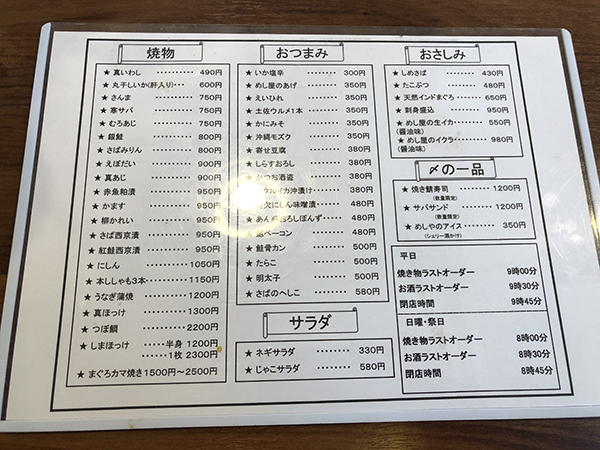 焼物
★ 真いわし ・・・・・・・・ 490円
★ 丸干しいか(肝入り)・・・ 600円
★ さんま ・・・・・・・・ 750円
★ 寒サバ ・・・・・・・・ 750円
★ むろあじ ・・・・・・・・ 750円
★ 銀鮭 ・・・・・・・・ 800円
★ さばみりん ・・・・・・・・ 800円
★ えぼだい ・・・・・・・・ 950円
★ 真あじ ・・・・・・・・ 950円
★ 赤魚粕漬 ・・・・・・・・ 950円
★ かます ・・・・・・・・ 950円
★ 柳かれい ・・・・・・・・ 950円
★ さば西京漬 ・・・・・・・・ 950円
★ 紅鮭西京漬 ・・・・・・・・ 950円
★ にしん ・・・・・・・・ 1050円
★ 本ししゃも3本・・・・・・・・ 1150円
★ うなぎ蒲焼 ・・・・・・・・ 1200円
★ 真ほっけ ・・・・・・・・ 1300円
★ つぼ鯛 ・・・・・・・・ 2200円
★ しまほっけ ・・・・・半身 1200円
・・・・・1枚 2300円
★ まぐろカマ焼き 1500円～2500円
おつまみ
★ いか塩辛 ・・・・・・・・ 300円
★ めし屋のあげ ・・・・・・・・ 350円
★ えいひれ ・・・・・・・・ 350円
★ 土佐ウルメ1本 ・・・・・・・・ 350円
★ かにみそ ・・・・・・・・ 350円
★ 沖縄モズク ・・・・・・・・ 350円
★ 寄せ豆腐 ・・・・・・・・ 380円
★ しらすおろし ・・・・・・・・ 380円
★ かつお酒盗 ・・・・・・・・ 380円
タルイカ沖漬け ・・・・・・・・ 380円
欠にしん味噌漬 ・・・・・・・・ 380円
★ あん おろしぽんず ・・・・・・・・ 380円
ベーコン ・・・・・・・・ 480円
★ 鮭骨カン ・・・・・・・・ 500円
★ たらこ ・・・・・・・・ 500円
★ 明太子 ・・・・・・・・ 500円
★ さばのへしこ ・・・・・・・・ 580円
サラダ
★ ネギサラダ ・・・・・・・・ 330円
★ じゃこサラダ ・・・・・・・・ 580円
おさしみ
★ しめさば ・・・・・・・・ 430円
★ たこぶつ ・・・・・・・・ 480円
★ 天然インドまぐろ ・・・・・ 650円
★ 刺身盛込 ・・・・・・・・ 950円
★ めし屋の生イカ ・・・・・ 550円
(醤油味)
★ めし屋のイクラ ・・・・・ 980円
(醤油味)
〆の一品
★ 焼き鯖寿司 ・・・・・・・・ 1200円
(数量限定)
★ サバサンド ・・・・・・・・ 1200円
(数量限定)
★ めしやのアイス ・・・・・ 350円
(シェリー酒かけ)
平日
焼き物ラストオーダー 9時00分
お酒ラストオーダー 9時30分
閉店時間 9時45分
日曜・祭日
焼き物ラストオーダー 8時00分
お酒ラストオーダー 8時30分
閉店時間 8時45分